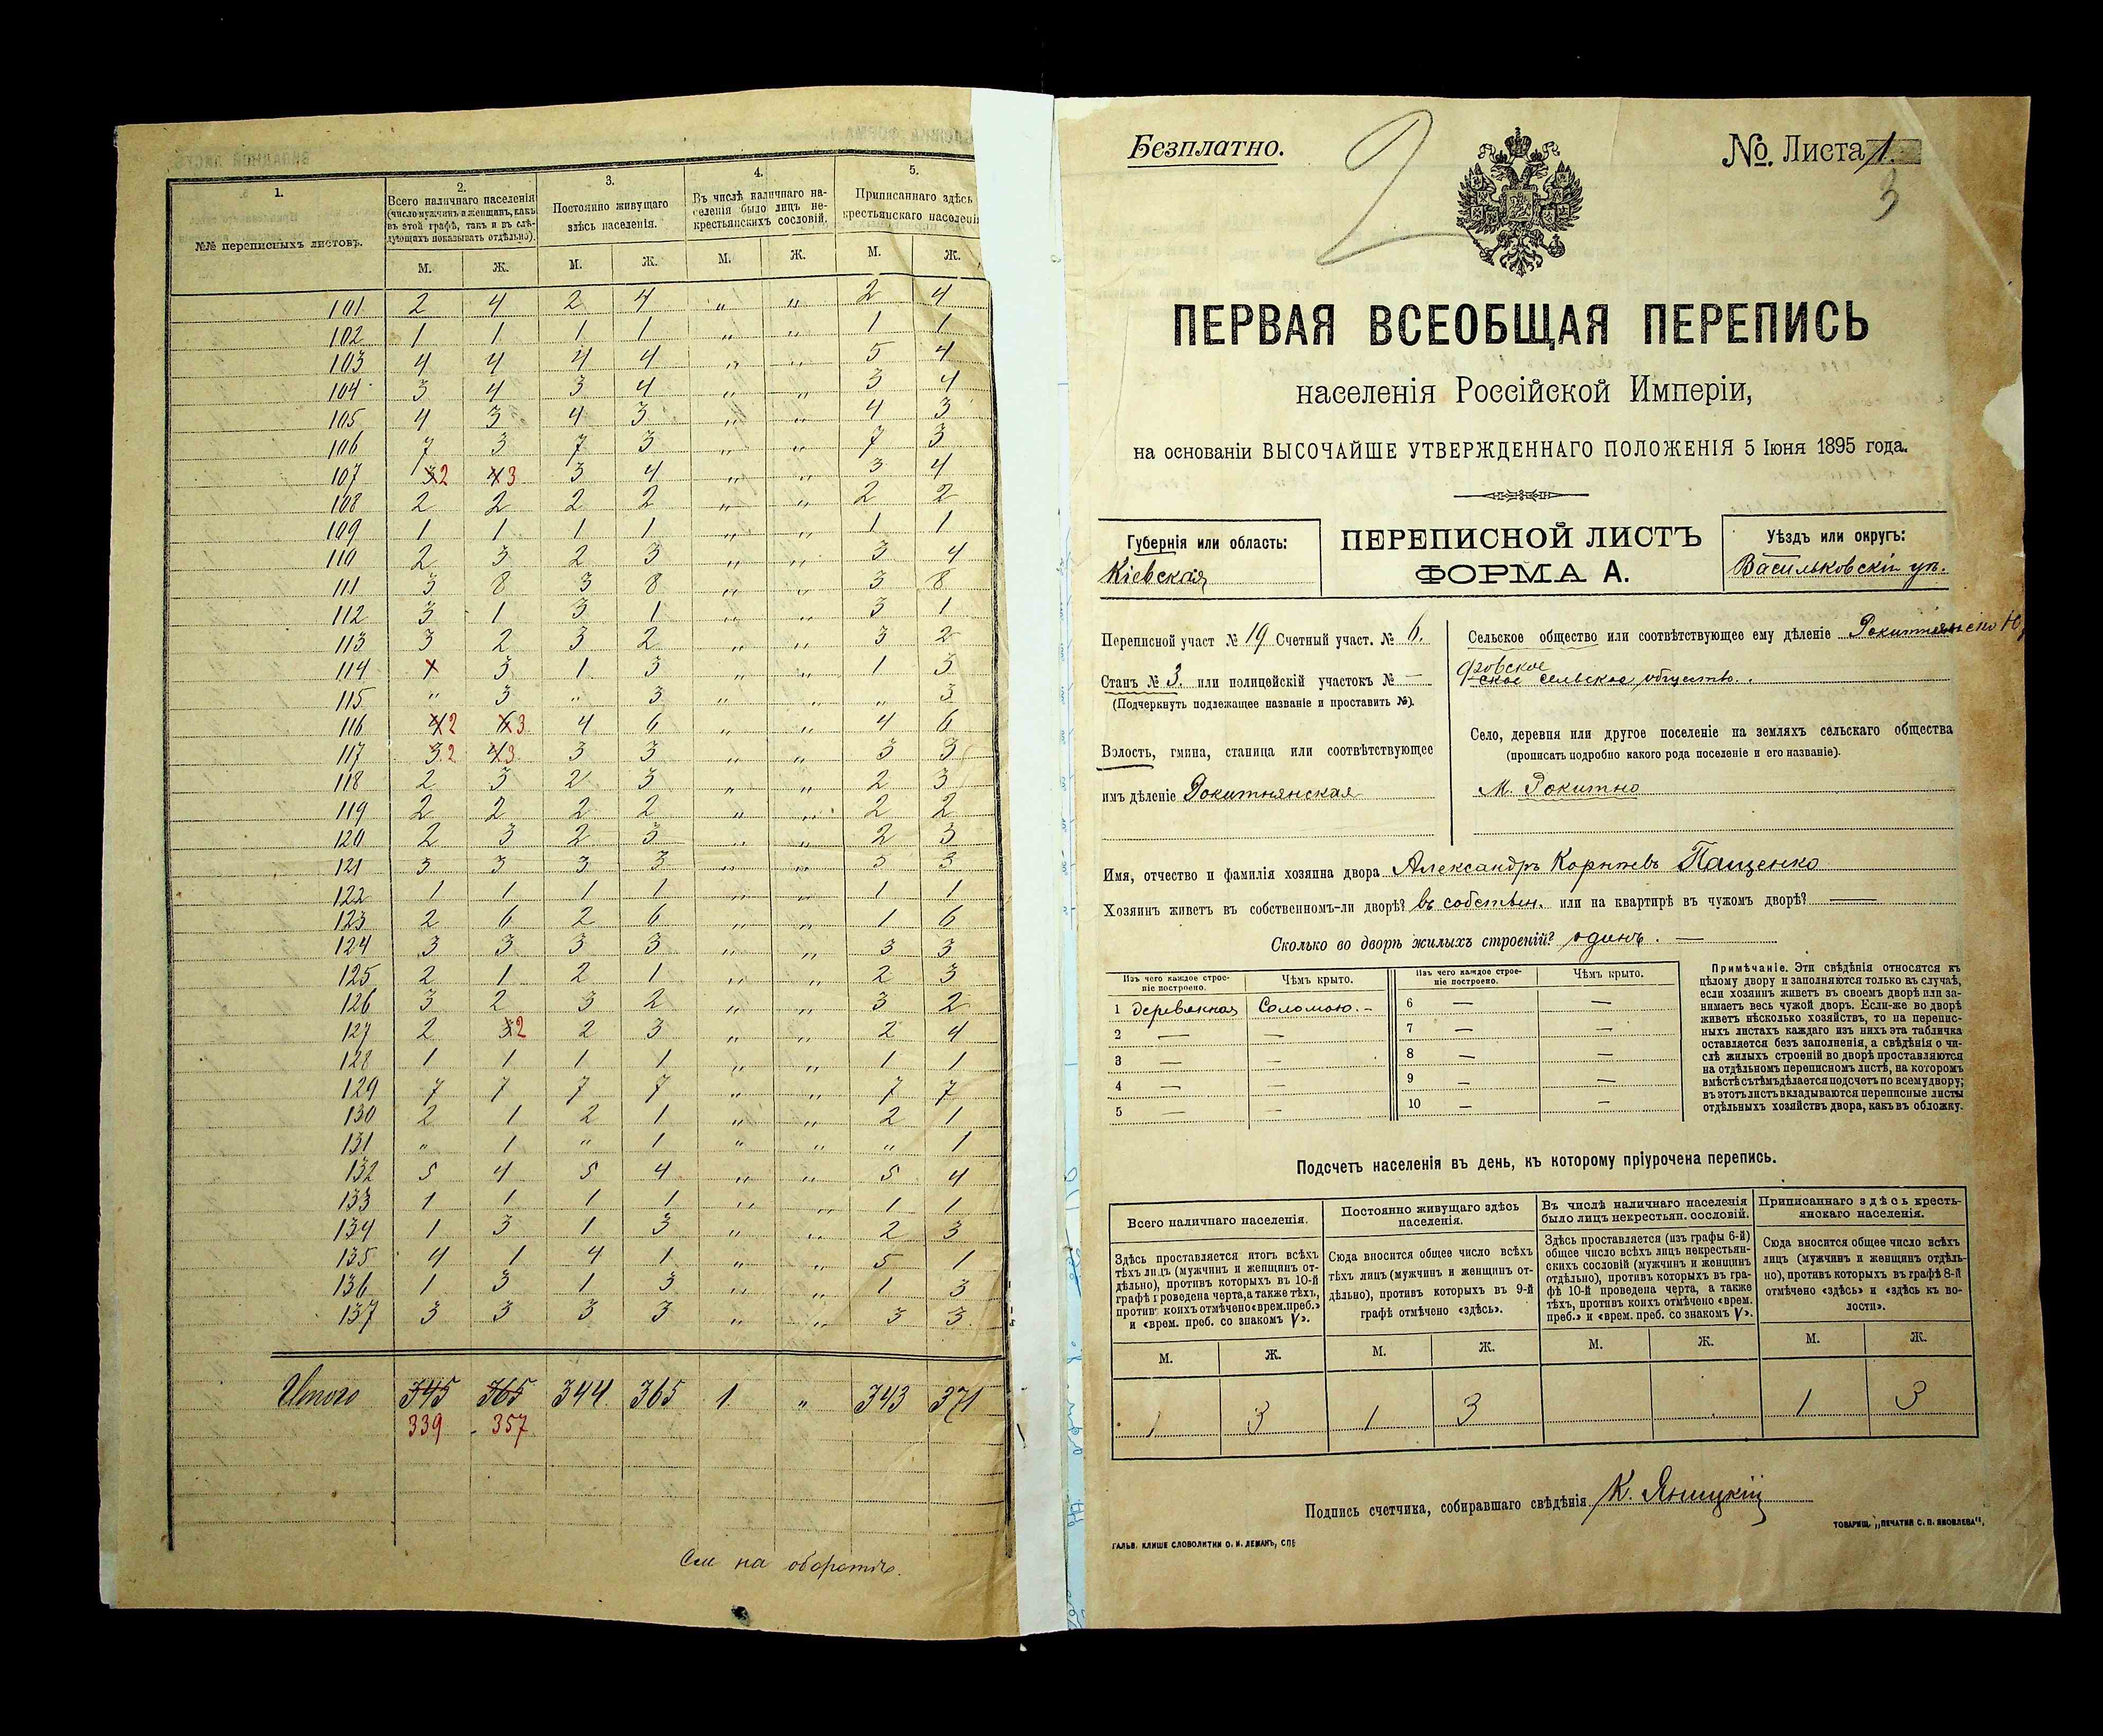 1.
2.
3.
4.
5.
№№ переписныхъ листовъ.
Всего наличнаго населенія
(число мужчинъ и женщинъ, какъ
въ этой графѣ, такъ и въ слѣ-
дующихъ показывать отдѣльно).
Постоянно живущаго
здѣсь населенія.
Въ числѣ наличнаго на-
селенія было лицъ не-
крестьянскихъ сословій.
Приписаннаго здѣсь
крестьянскаго населенія
М. Ж. М. Ж. М. Ж. М. Ж.
101 2 4 2 4 „ „ 2 4
102 1 1 1 1 „ „ 1 1
103 4 4 4 4 „ „ 5 4
104 3 4 3 4 „ „ 3 4
105 4 3 4 3 „ „ 4 3
106 7 3 7 3 „ „ 7 3
107 3 2 4 3 3 4 „ „ 3 4
108 2 2 2 2 „ „ 2 2
109 1 1 1 1 „ „ 1 1
110 2 3 2 3 „ „ 3 4
111 3 8 3 8 „ „ 3 8
112 3 1 3 1 „ „ 3 1
113 3 2 3 2 „ „ 3 2
114 1 3 1 3 „ „ 1 3
115 „ 3 „ 3 „ „ „ 3
116 4 2 6 3 4 6 „ „ 4 6
117 3 2 4 3 3 3 „ „ 3 3
118 2 3 2 3 „ „ 2 3
119 2 2 2 2 „ „ 2 2
120 2 3 2 3 „ „ 2 3
121 3 3 3 3 „ „ 3 3
122 1 1 1 1 „ „ 1 1
123 2 6 2 6 „ „ 1 6
124 3 3 3 3 „ „ 3 3
125 2 1 2 1 „ „ 2 3
126 3 2 3 2 „ „ 3 2
127 2 3 2 2 3 „ „ 2 4
128 1 1 1 1 „ „ 1 1
129 7 7 7 7 „ „ 7 7
130 2 1 2 1 „ „ 2 1
131 „ 1 „ 1 „ „ „ 1
132 5 4 5 4 „ „ 5 4
133 1 1 1 1 „ „ 1 1
134 1 3 1 3 „ „ 2 3
135 4 1 4 1 „ „ 5 1
136 1 3 1 3 „ „ 1 3
137 3 3 3 3 „ „ 3 3
Итого 345 365 344 365 1 „ 343 371
339 357
См на оборотѣ.
Безплатно.
2
№. Листа 1.
3
ПЕРВАЯ ВСЕОБЩАЯ ПЕРЕПИСЬ
населенія Россійской Имперіи,
на основаніи ВЫСОЧАЙШЕ УТВЕРЖДЕННАГО ПОЛОЖЕНІЯ 5 Іюня 1895 года.
Губернія или область:
Кіевская
ПЕРЕПИСНОЙ ЛИСТЪ
ФОРМА А.
Уѣздъ или округъ:
Васильковскій уѣ.
Переписной участ № 19 Счетный участ. № 6.
Станъ № 3. или полицейскій участокъ № —
(Подчеркнуть подлежащее названіе и проставить №).
Волость, гмина, станица или соотвѣтствующее
имъ дѣленіе Рокитнянская
Сельское общество или соотвѣтствующее ему дѣленіе
сельское общество.
Село, деревня или другое поселеніе на земляхъ сельскаго общества
(прописать подробно какого рода поселеніе и его названіе).
М. Рокитно
Имя, отчество и фамилія хозяина двора Александръ Корнѣевъ Пащенко
Хозяинъ живетъ въ собственномъ-ли дворѣ? въ собствен. или на квартирѣ въ чужомъ дворѣ? —
Сколько во дворѣ жилыхъ строеній? одинъ. —
Изъ чего каждое строе-
ніе построено.
Чѣмъ крыто.
Изъ чего каждое строе-
ніе построено.
Чѣмъ крыто.
1 деревянная Соломою. — 6 — —
2 — — 7 — —
3 — — 8 — —
4 — — 9 — —
5 — — 10 — —
Примѣчаніе. Эти свѣдѣнія относятся къ
цѣлому двору и заполняются только въ случаѣ,
если хозяинъ живетъ въ своемъ дворѣ или за-
нимаетъ весь чужой дворъ. Если-же во дворѣ
живетъ нѣсколько хозяйствъ, то на перепис-
ныхъ листахъ каждаго изъ нихъ эта табличка
оставляется безъ заполненія, а свѣдѣнія о чи-
слѣ жилыхъ строеній во дворѣ проставляются
на отдѣльномъ переписномъ листѣ, на которомъ
вмѣстѣ съ тѣмъ дѣлается подсчетъ по всему двору;
въ этотъ листъ вкладываются переписные листы
отдѣльныхъ хозяйствъ двора, какъ въ обложку.
Подсчетъ населенія въ день, къ которому пріурочена перепись.
Всего наличнаго населенія.
Постоянно живущаго здѣсь
населенія.
Въ числѣ наличнаго населенія
было лицъ некрестьян. сословій.
Приписаннаго здѣсь кресть-
янскаго населенія.
Здѣсь проставляется итогъ всѣхъ
тѣхъ лицъ (мужчинъ и женщинъ от-
дѣльно), противъ которыхъ въ 10-й
графѣ проведена черта, а также тѣхъ,
противъ коихъ отмѣчено «врем. преб.»
и «врем. преб. со знакомъ V».
Сюда вносится общее число всѣхъ
тѣхъ лицъ (мужчинъ и женщинъ от-
дѣльно), противъ которыхъ въ 9-й
графѣ отмѣчено «здѣсь».
Здѣсь проставляется (изъ графы 6-й)
общее число всѣхъ лицъ некрестьян-
скихъ сословій (мужчинъ и женщинъ
отдѣльно), противъ которыхъ въ гра-
фѣ 10-й проведена черта, а также
тѣхъ, противъ коихъ отмѣчено «врем.
преб.» и «врем. преб. со знакомъ V».
Сюда вносится общее число всѣхъ
лицъ (мужчинъ и женщинъ отдѣль-
но), противъ которыхъ въ графѣ 8-й
отмѣчено «здѣсь» и «здѣсь къ во-
лости».
М. Ж. М. Ж. М. Ж. М. Ж.
1 3 1 3 1 3
Подпись счетчика, собиравшаго свѣдѣнія К. Яницкій
ГАЛЬВ. КЛИШЕ СЛОВОЛИТНИ О. И. ЛЕМАНЪ, СПБ
ТОВАРИЩ. „ПЕЧАТНЯ С. П. ЯКОВЛЕВА“.